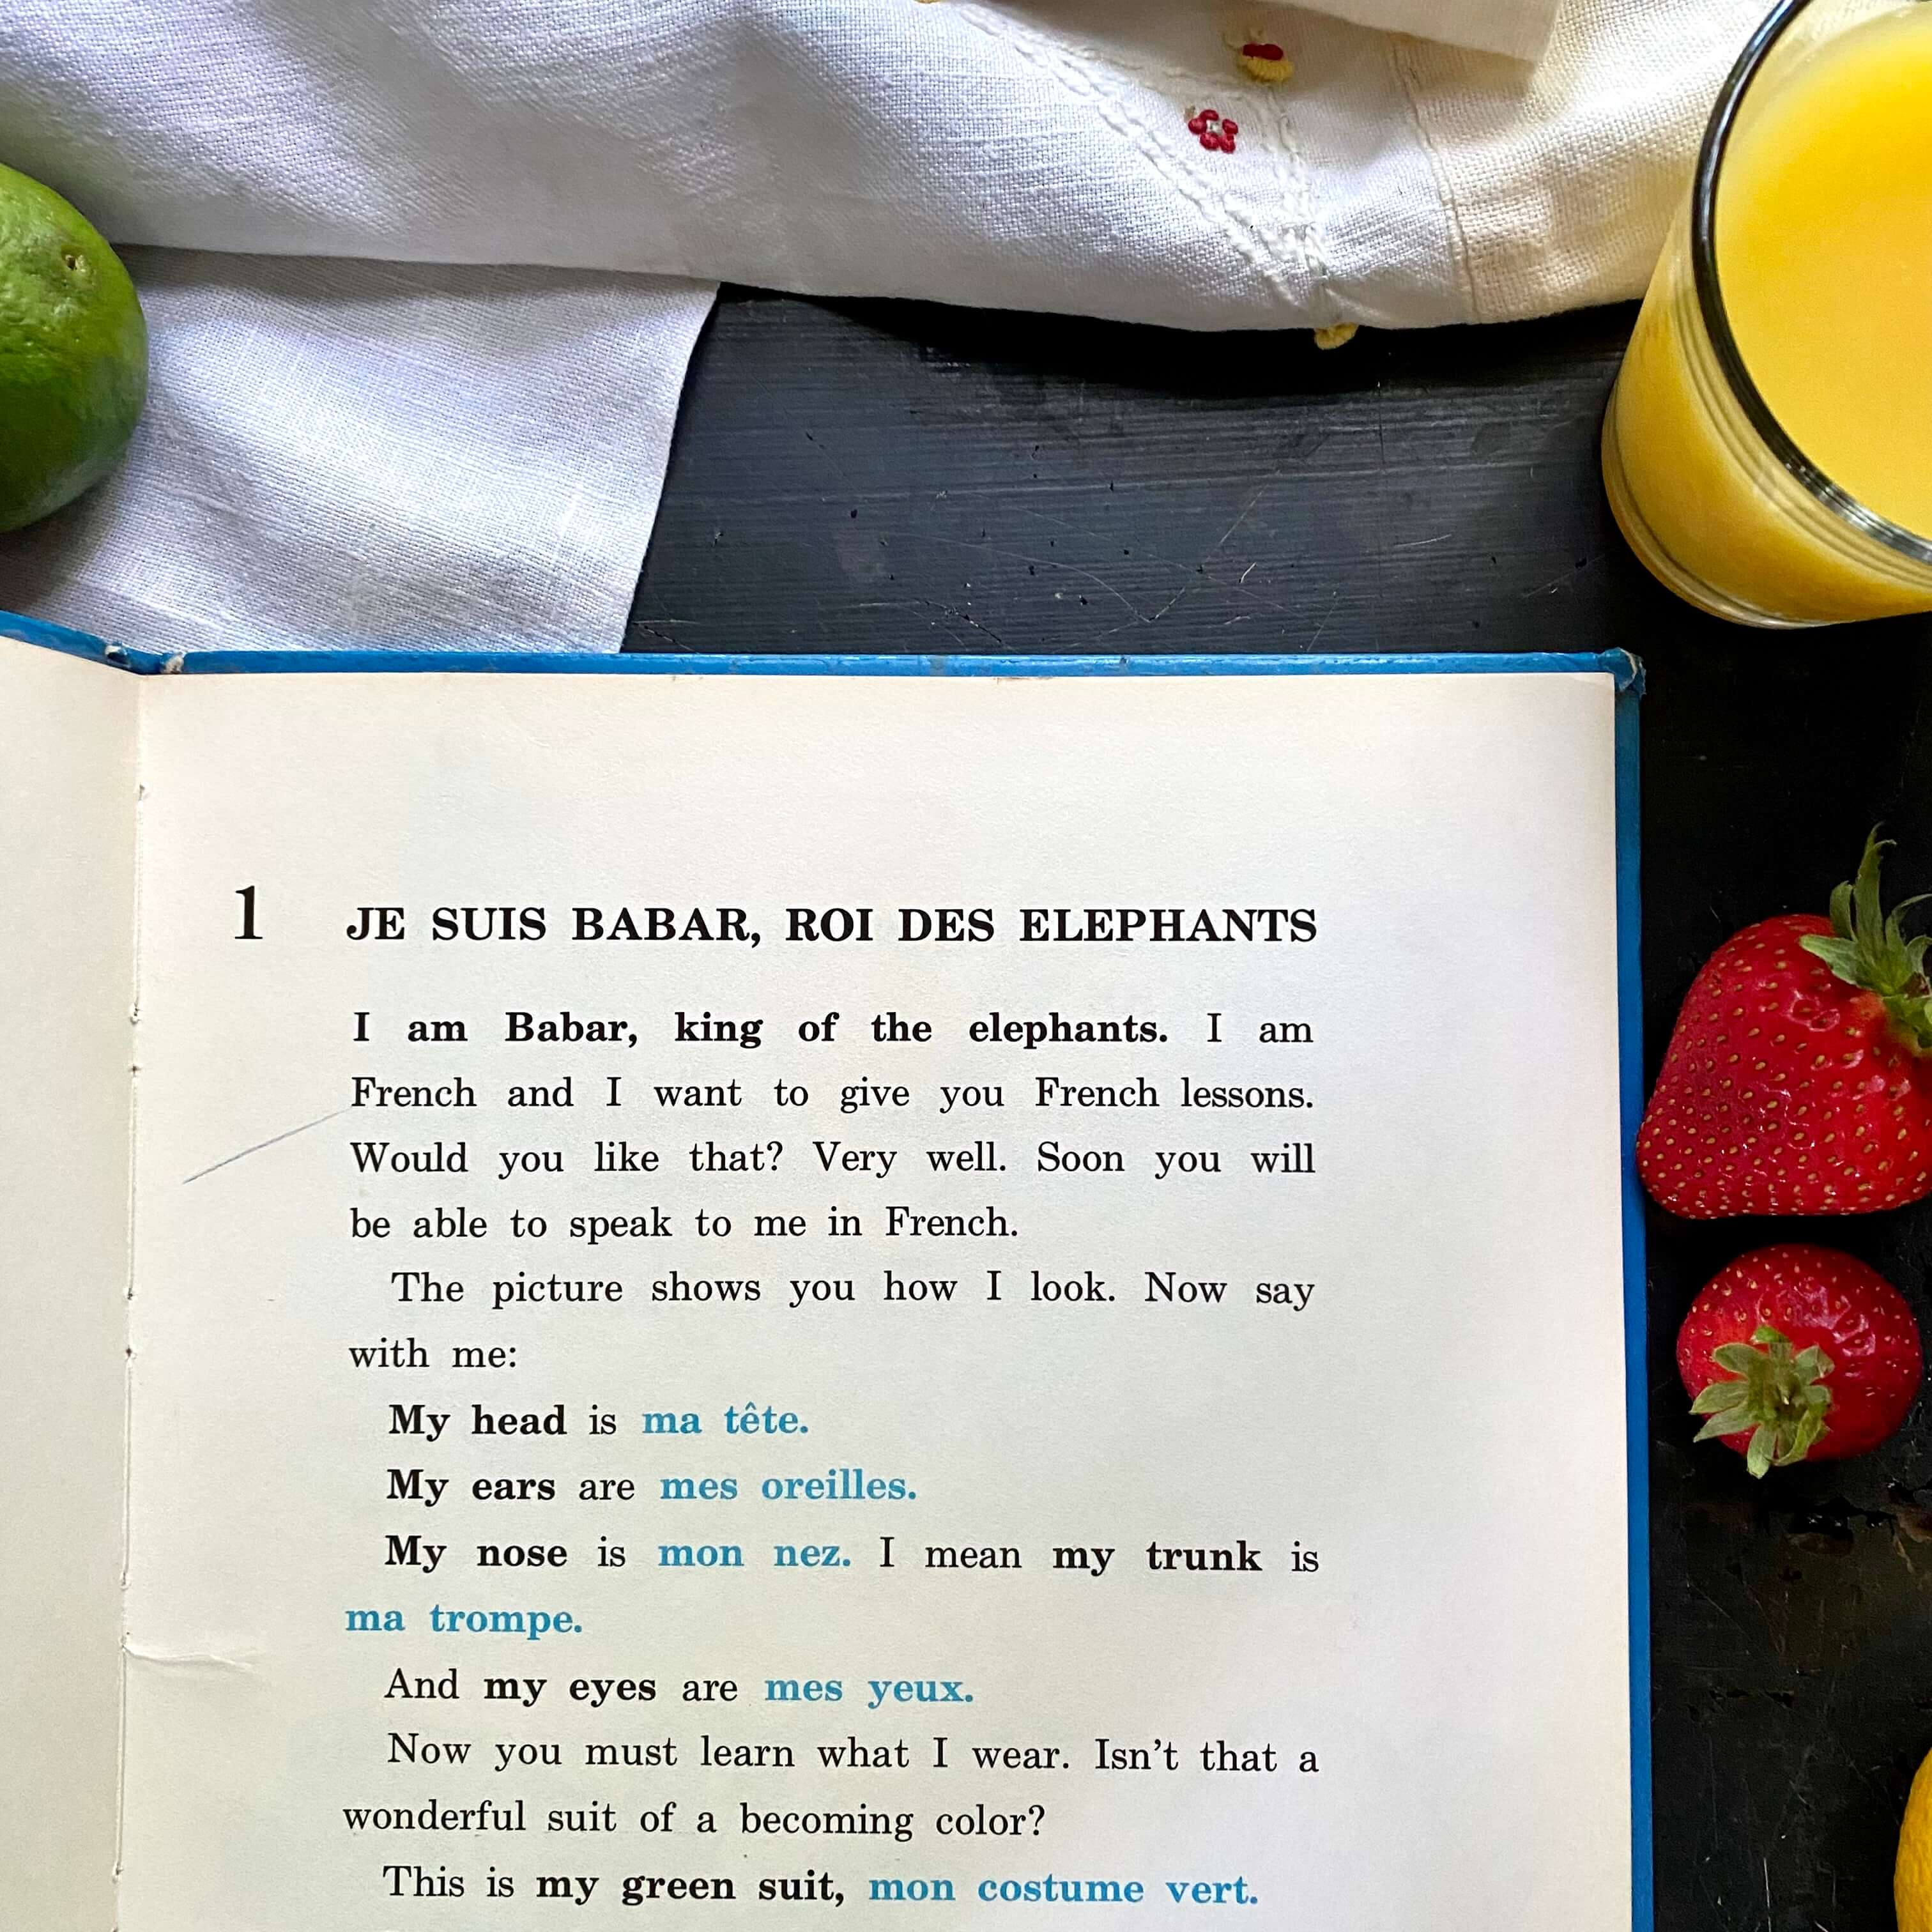 1 JE SUIS BABAR, ROI DES ELEPHANTS
I am Babar, king of the elephants. I am
French and I want to give you French lessons.
Would you like that? Very well. Soon you will
be able to speak to me in French.
The picture shows you how I look. Now say
with me:
My head is ma tête.
My ears are mes oreilles.
My nose is mon nez. I mean my trunk is
ma trompe.
And my eyes are mes yeux.
Now you must learn what I wear. Isn't that a
wonderful suit of a becoming color?
This is my green suit, mon costume vert.